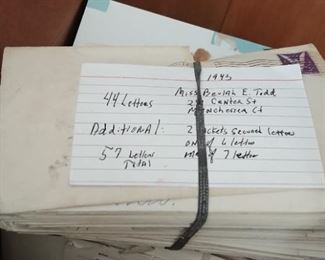 1943
44 Letters
Miss Beulah E. Todd
Center St
Manchester Ct
Additional:
2 Packets Secured letters
one of 6 letters
57 Letters
Total
one of 7 letters